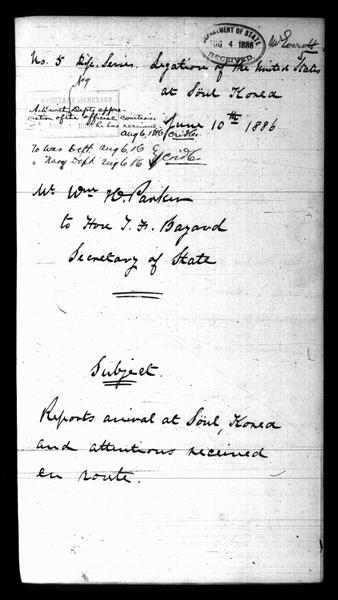 DEPARTMENT OF STATE
AUG 4 1886
RECEIVED
Mr Everett
No. 5 Dip. Series. Legation of the United States
at Söul Korea
June 10th 1886
ASSISTANT SECRETARY
Ack with Depts appre-
ciation of the official courtesies
he has received.
Aug 6, 86
To War Dept. Aug 6. 86
" Navy Dept Aug 6. 86
Mr Wm H. Parker
to Hon T. F. Bayard
Secretary of State
Subject.
Reports arrival at Söul, Korea
and attentions received
en route.